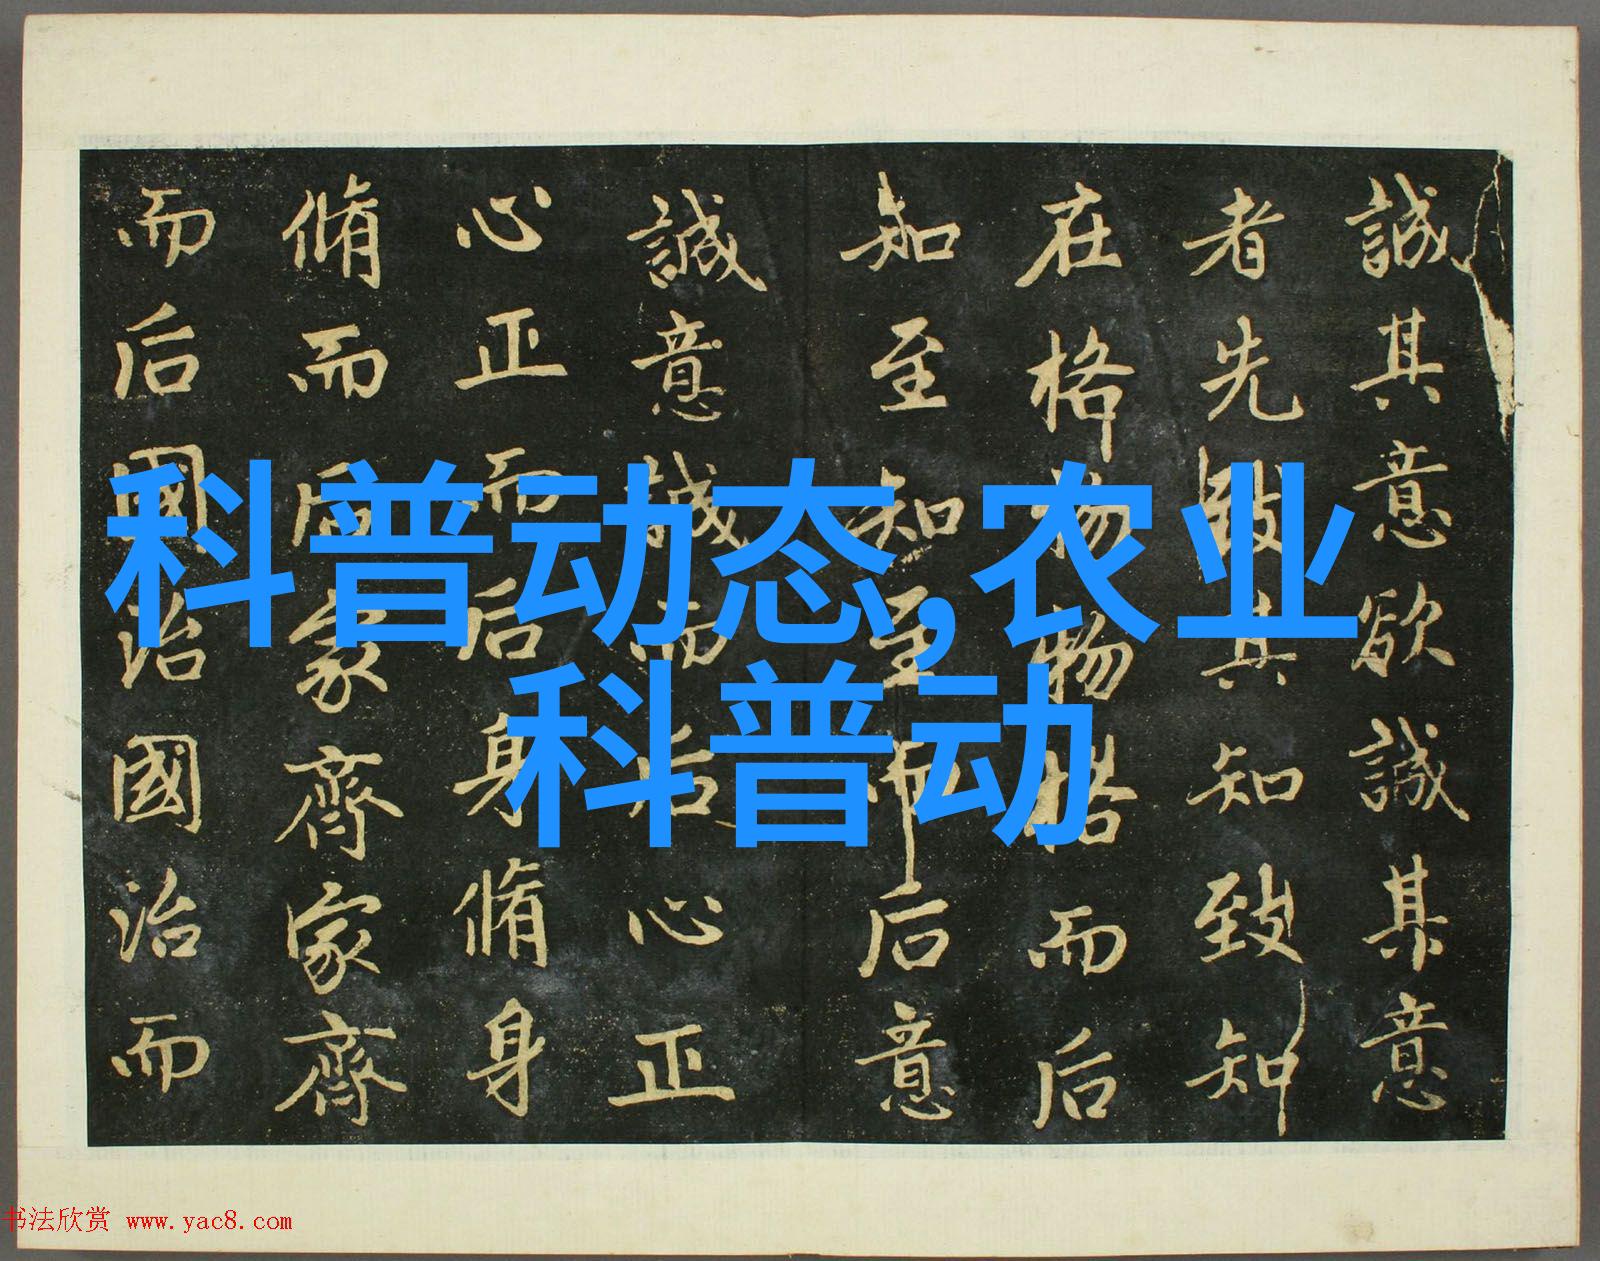 誠其意欲誠其意
者先致其知致知
在格物物格而后
知至知至而后意
誠意誠而后心正
心正而后身脩身
脩而后家齊家齊
而后國治國治而
科普动态,农业
科普动
书法欣赏 www.yac8.com